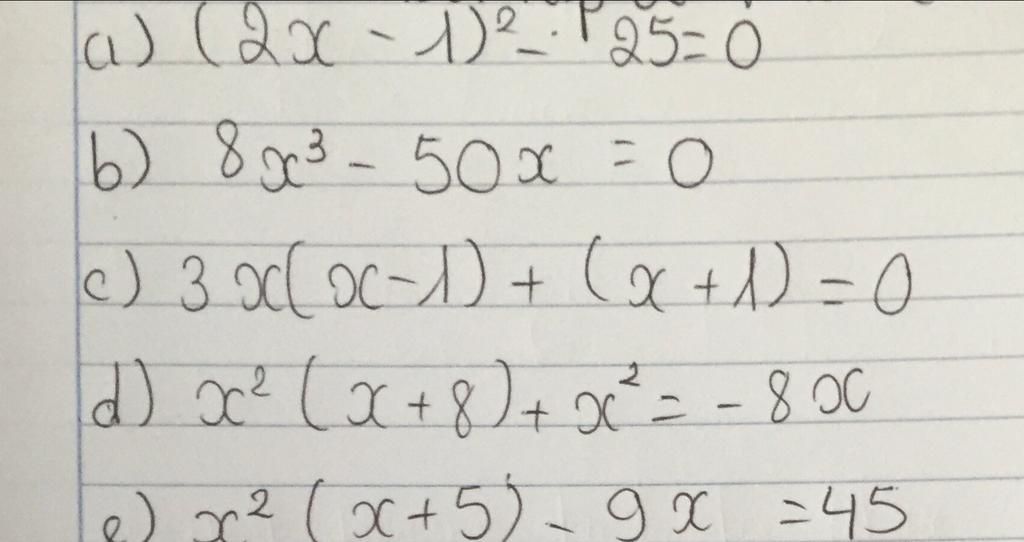 a) (2x - 1)² - 25 = 0
b) 8x³ - 50x = 0
c) 3x(x-1) + (x+1) = 0
d) x² (x+8) + x² = -8x
e) x² (x+5) - 9x = 45